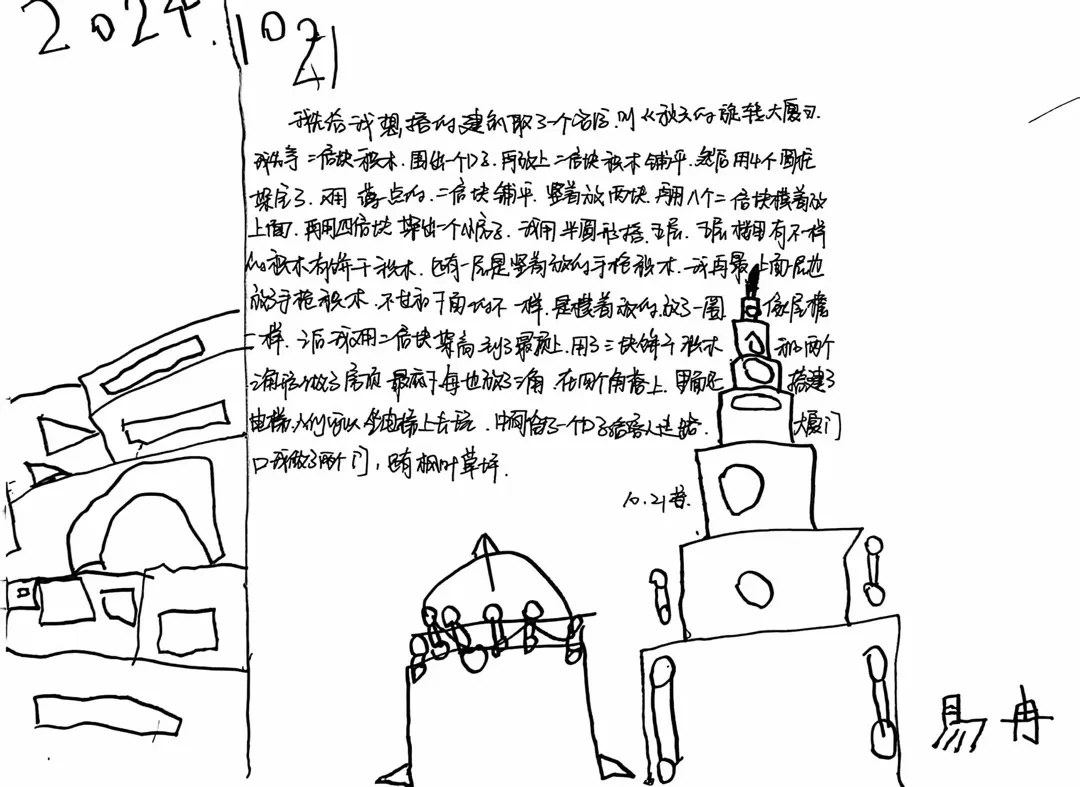 2024.10 21
我先给我想搭的建筑取了一个名字,叫《放大的旋转大厦》.
我先拿二倍块积木.围出一个口子.再放上二倍块积木铺平.然后用4个圆柱
架空了.又用 薄一点的.二倍块铺平.竖着放两块.再用八个二倍块横着放
上面.再用四倍块 架出一个小房子.我用半圆形搭五层.五层楼里有不一样
的积木有饼干积木.还有一层是竖着放的手枪积木.我再最上面层也
放了手枪积木.不过和下面的不一样.是横着放的.放了一圈 像屋檐
一样.之后我又用二倍块架高.到了最顶上.用了三块饼干积木 和两个
三角形做了房顶 最底下每也放了三角.在四个角落上.里面还 搭建了
电梯,人们可以坐电梯上去玩.中间留了一个口子给客人进出. 大厦门
口我做了两个门,还有枫叶草坪.
10.21
易冉